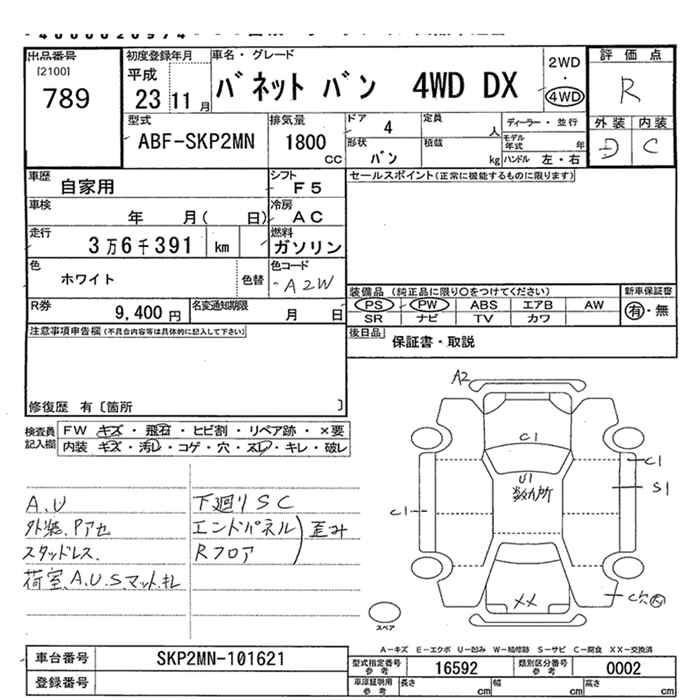 出品番号
[2100]
789
初度登録年月
平成
23 11 月
車名・グレード
バネット バン 4WD DX
2WD
・
4WD
評価点
R
外装 内装
D C
型式
ABF-SKP2MN
排気量
1800
CC
ドア
4
定員
人
ディーラー・並行
形状
バン
積載
kg
モデル年式
年
ハンドル 左・右
車歴
自家用
シフト
F5
車検
年 月( 日)
冷房
AC
走行
3万6千391 km
燃料
ガソリン
色
ホワイト
色替
色コード
A2W
R券
9,400 円
名変通知期限
月 日
セールスポイント(正常に機能するものに限ります)
装備品 (純正品に限り○をつけてください)
PS PW ABS エアB AW
SR ナビ TV カワ
新車保証書
有・無
後日品
保証書・取説
注意事項申告欄(不具合内容等は具体的に記入して下さい)
修復歴 有〔箇所 〕
検査員記入欄
FW キズ・飛石・ヒビ割・リペア跡・×要
内装 キズ・汚レ・コゲ・穴・スレ・キレ・破レ
A.U
外装.Pアセ
スタッドレス.
荷室.A.U.S.マットキレ
下廻りSC
エンドパネル
Rフロア
歪み
A2
C1
U1
数ヵ所
C1
S1
C1
XX
C穴
スペア
A-キズ E-エクボ U-凹み W-補修跡 S-サビ C-腐食 XX-交換済
車台番号
SKP2MN-101621
登録番号
型式指定番号
参考
16592
類別区分番号
参考
0002
車庫証明用
参考
長さ
cm
幅
cm
高さ
cm